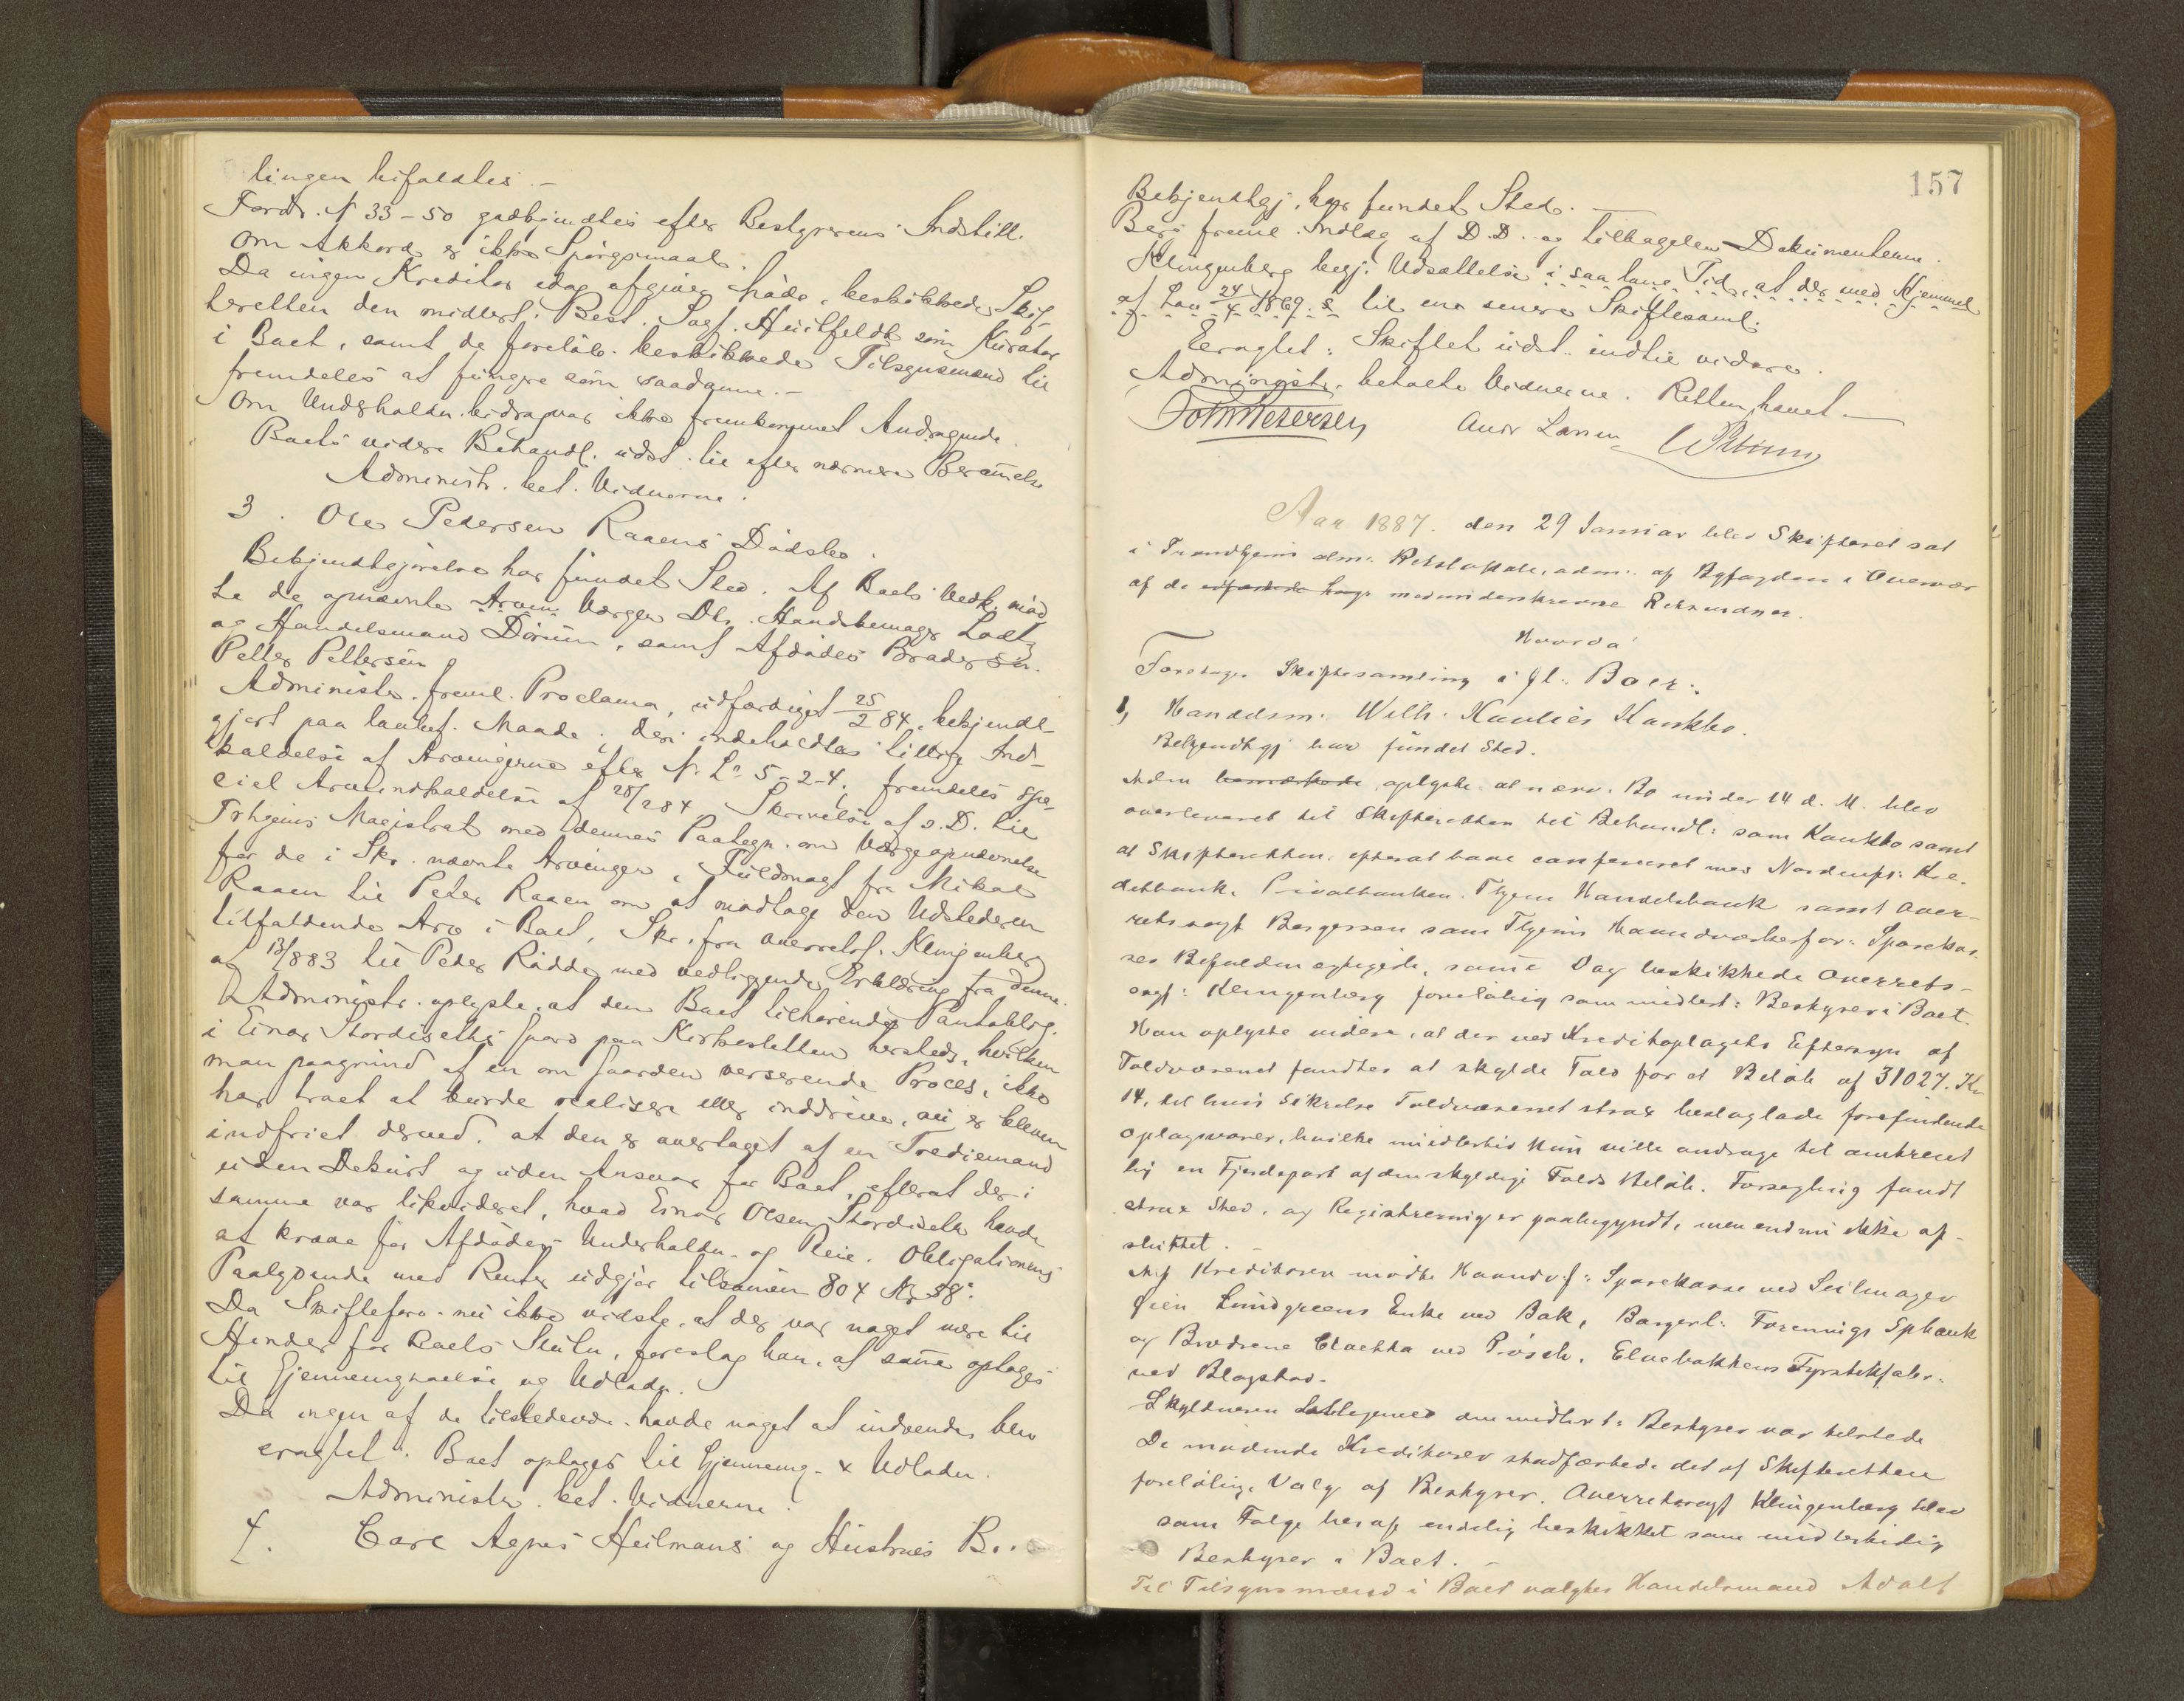 lingen bifaldtes. –
Fordr. N 33-50 godkjendtes efter Bestyrerens Indstill.
Om Akkord er ikke Spörgsmaal.
Da ingen Kreditor idag afgiver Möde, beskikkedes Skif-
teretten den midlert. Best. Sagf. Huitfeldt som Kurator
i Boet, samt de foreløb. beskikkede Tilsynsmænd til
fremdeles at fungere som saadanne. –
Om Underholdn. bidrag var ikke fremkommet Andragende.
Boets videre Behandl. udst. til efter nærmere Berammelse
Administr. bet. Vidnerne.
3. Ole Pedersen Raaens Dödsbo.
Bekjendtgjörelse har fundet Sted. Af Boets Vedk. möd-
te de opnævnte Arven. Værger Dhr. Handskemager Lodtz
og Handelsmand Dörum, samt Afdödes Broder Sön
Petter Pettersen
Administr. freml. Proclama, udfærdiget 25/2 84, bekjendt-
gjort paa lovbef. Maade; den indeholdtes tillige Ind-
kaldelse af Arvingerne efter N. L's 5-2-4, fremdeles spe-
ciel Arveindkaldelse af 28/2 84, Skrivelse af s. D. til
Trhjems Magistrat med dennes Paategn. om Værgeopnævnelse
for de i Skr. nævnte Arvinger, Fuldmagt fra Mikal
Raaen til Peter Raaen om at modtage den Udstederen
tilfaldende Arv i Boet, Skr. fra Overretsf. Klingenberg
af 13/8 83 til Peder Rödde med vedliggende Erklæring fra denne.
Administr. oplyste, at den Boet tilhörende Pantoblig.
i Einar Stordisetts Gaard paa Kirkesletten hersteds, hvilken
man paagrund af en om Gaarden verserende Proces, ikke
har troet at burde realisere eller inddrive, nu er bleven
indfriet derved, at den er overtaget af en Trediemand
uden Dekurt og uden Ansvar for Boet, efterat der i
samme var likvideret, hvad Einar Olsen Stordisett havde
at kræve for Afdödes Underholdn. og Pleie. Obligationens
Paalydende med Renter udgjör tilsammen 804 Kr 38.
Da Skifteforv. nu ikke vidste, at der var noget mere til
Hinder for Boets Slutn., foreslog han, at samme optages
til Gjennemgaaelse og Udlodn.
Da ingen af de tilstedevær. havde noget at indvende, blev
eragtet: Boet optages til Gjennemg. & Udlodn.
Administr. bet. Vidnerne.
4. Carl Agnes Heilmans og Hustrues Bo.
157
Bekjendtgj. har fundet Sted. –
Berg freml. Indlæg af D.D. og tilbagelev. Dokumenterne.
Klingenberg begj. Udsættelse i saa lang Tid, at der med Hjemmel
af Lov 24/4 1869. § til en senere Skiftesaml.
Eragtet: Skiftet udst. indtil videre.
Administr. betalte Vidnerne. Retten hævet. –
Joh Petersen Andr Larsen
Aar 1887. den 29 Januar blev Skifteret sat
i Trondhjems alm. Retslokale, adm. af Byfogden i Overvær
af de medunderskrevne Retsvidner.
Hvorda
Foretoges Skiftesamling i fl. Boer:
1, Handelsm. Wilh. Kauliers Konkbo.
Bekjendtgj har fundet Sted.
Adm bemærkede oplyste at nærv. Bo under 14 d. M. blev
overleveret til Skifteretten til Behandl. som Konkbo samt
at Skifteretten, efterat have confereret med Nordenfj. Kre-
ditbank, Privatbanken, Thjems Handelsbank samt Over-
retssagf Borgersen som Thjems Haandværkerfor. Sparekas-
ses Befuldmægtigede, samme Dag beskikkede Overrets-
sagf. Klingenberg foreløbig som midlert. Bestyrer i Boet.
Han oplyste videre, at der ved Kreditoplagets Eftersyn af
Toldvæsenet fandtes at skylde Told for et Beløb af 31027. Kr
14, til hvis Sikrelse Toldvæsenet strax beslaglagde forefindende
oplagsvarer, hvilke imidlertid kun ville andrage til omtrent
lig en Fjerdepart af den skyldige Tolds Beløb. Forsegling fandt
strax Sted, og Registrering er paabegyndt, men endnu ikke af-
sluttet. –
Af Kreditorer mødte Haandv.f. Sparekasse ved Seilmager
Øien Lundgreens Enke ved Bak, Borgerl. Forenings Spbank
og Brødrene Clachka ved Pösch, Elvebakkens Fyrstikfabr.
ved Blagstad.
Skyldneren saavelsom den midlert. Bestyrer var tilstede
De mødende Kreditorer stadfæstede det af Skifteretten
foreløbige Valg af Bestyrer. Overretssagf Klingenberg blev
som Følge heraf endelig beskikket som midlertidig
Bestyrer i Boet. –
Til Tilsynsmænd i Boet valgtes Handelsmand Adolf